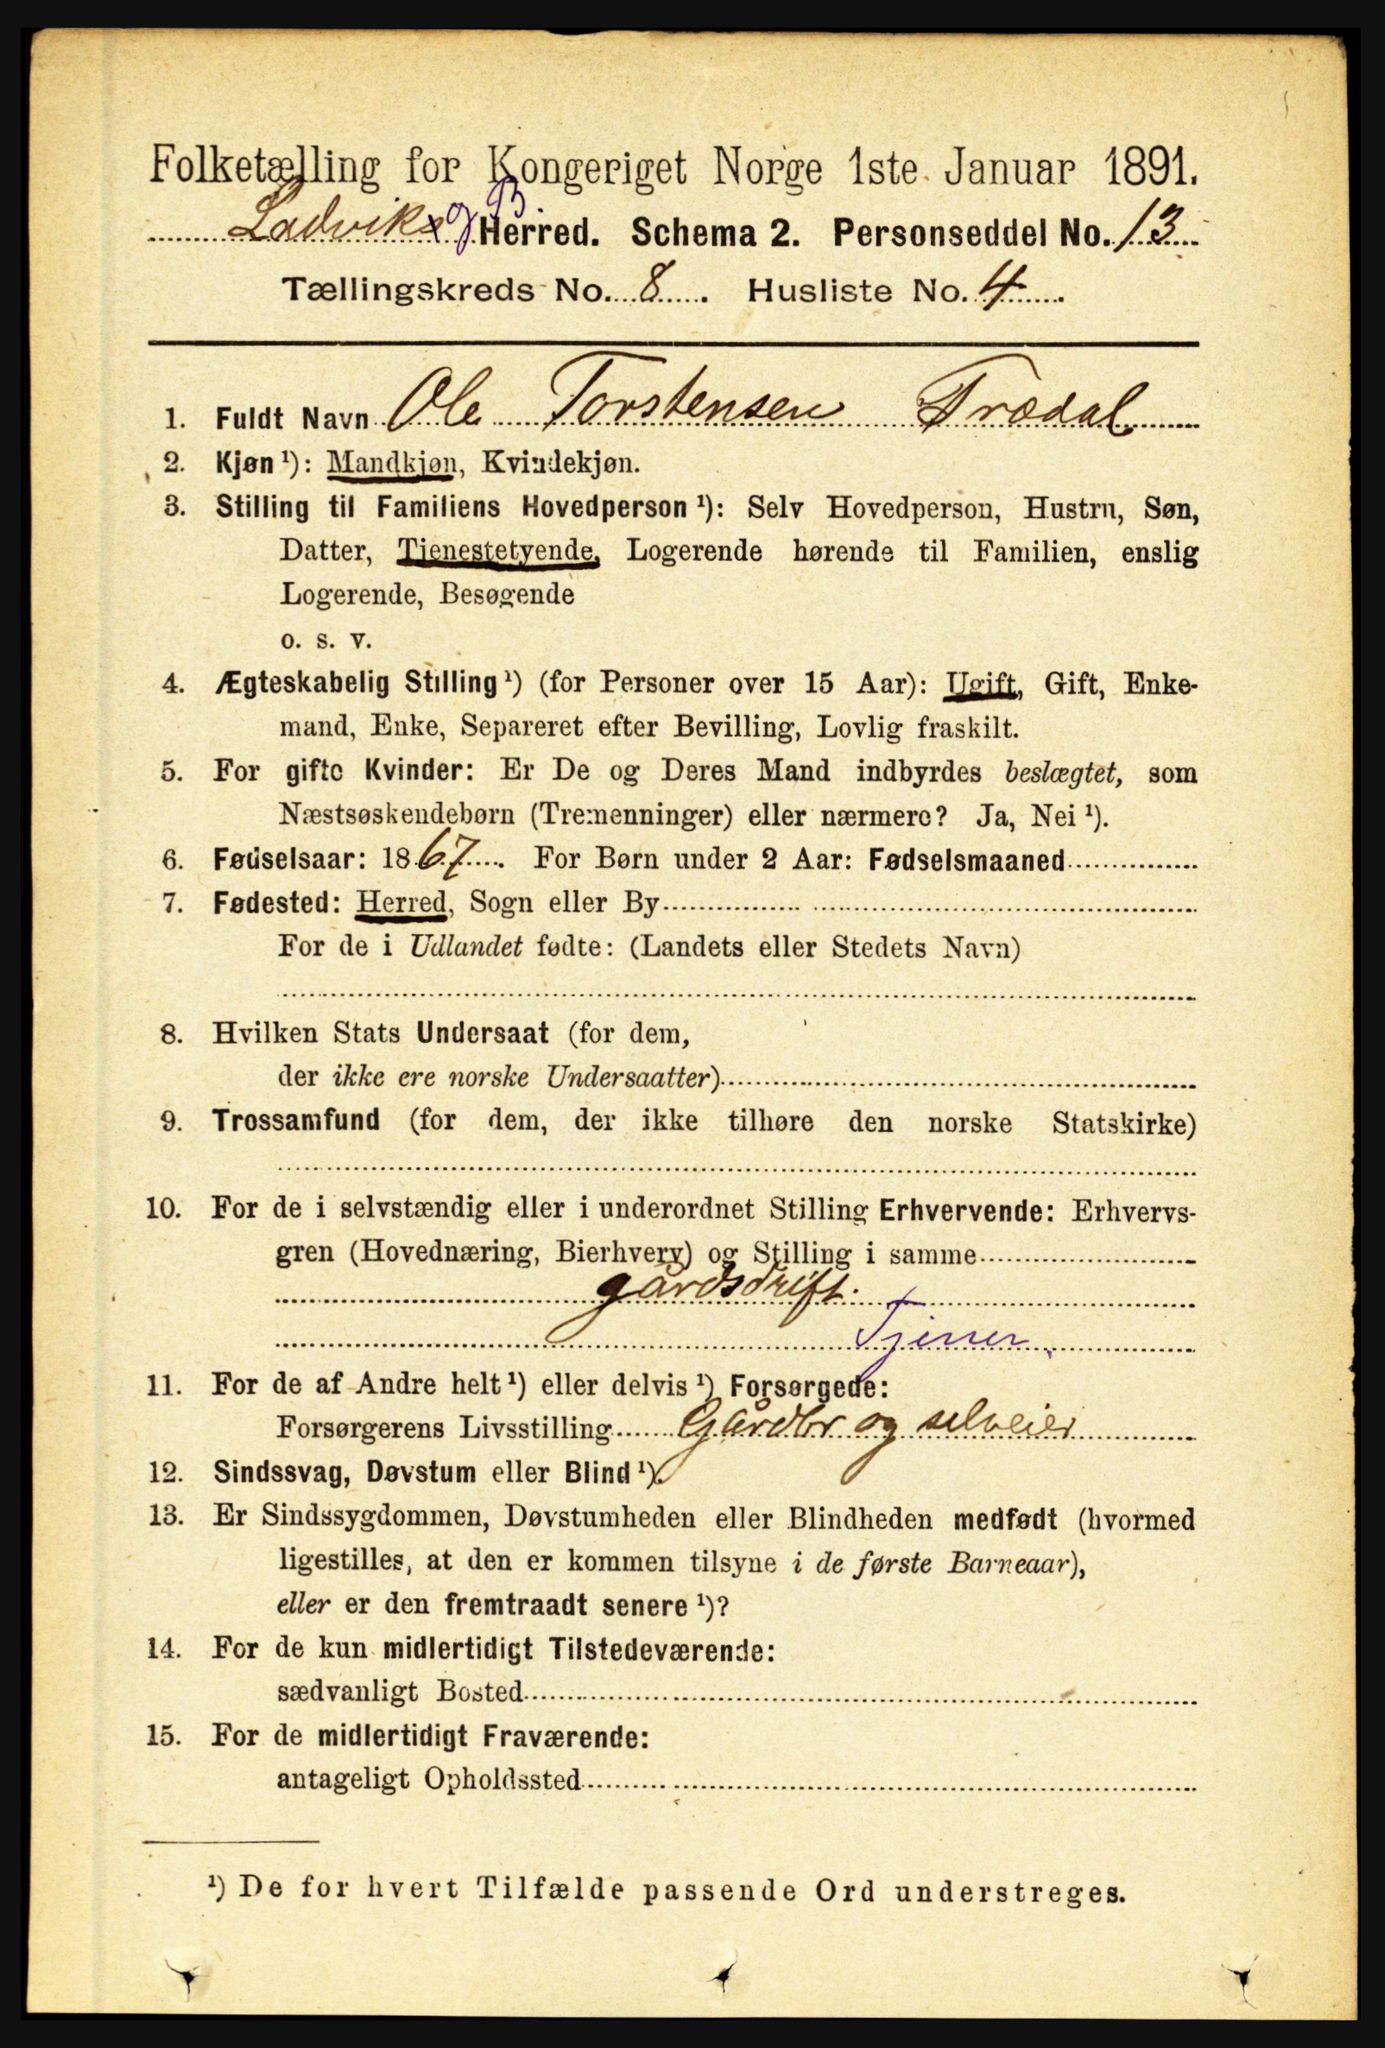 Folketælling for Kongeriget Norge 1ste Januar 1891.
Ladvik og B Herred. Schema 2. Personseddel No. 13
Tællingskreds No. 8. Husliste No. 4.
1. Fuldt Navn Ole Torstensen Trædal
2. Kjøn ¹): Mandkjøn, Kvindekjøn.
3. Stilling til Familiens Hovedperson ¹): Selv Hovedperson, Hustru, Søn,
Datter, Tjenestetyende, Logerende hørende til Familien, enslig
Logerende, Besøgende
o. s. v.
4. Ægteskabelig Stilling ¹) (for Personer over 15 Aar): Ugift, Gift, Enke-
mand, Enke, Separeret efter Bevilling, Lovlig fraskilt.
5. For gifte Kvinder: Er De og Deres Mand indbyrdes beslægtet, som
Næstsøskendebørn (Tremenninger) eller nærmere? Ja, Nei ¹).
6. Fødselsaar: 1867. For Børn under 2 Aar: Fødselsmaaned
7. Fødested: Herred, Sogn eller By
For de i Udlandet fødte: (Landets eller Stedets Navn)
8. Hvilken Stats Undersaat (for dem,
der ikke ere norske Undersaatter)
9. Trossamfund (for dem, der ikke tilhøre den norske Statskirke)
10. For de i selvstændig eller i underordnet Stilling Erhvervende: Erhvervs-
gren (Hovednæring, Bierhverv) og Stilling i samme
gårdsdrift.
Tjener
11. For de af Andre helt ¹) eller delvis ¹) Forsørgede:
Forsørgerens Livsstilling Gårdbr og selveier
12. Sindssvag, Døvstum eller Blind ¹).
13. Er Sindssygdommen, Døvstumheden eller Blindheden medfødt (hvormed
ligestilles, at den er kommen tilsyne i de første Barneaar),
eller er den fremtraadt senere ¹)?
14. For de kun midlertidigt Tilstedeværende:
sædvanligt Bosted
15. For de midlertidigt Fraværende:
antageligt Opholdssted
¹) De for hvert Tilfælde passende Ord understreges.